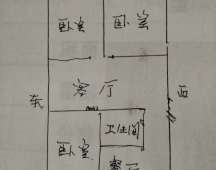 卧室 卧室
客厅
东 西
卫生间
卧室
餐厅